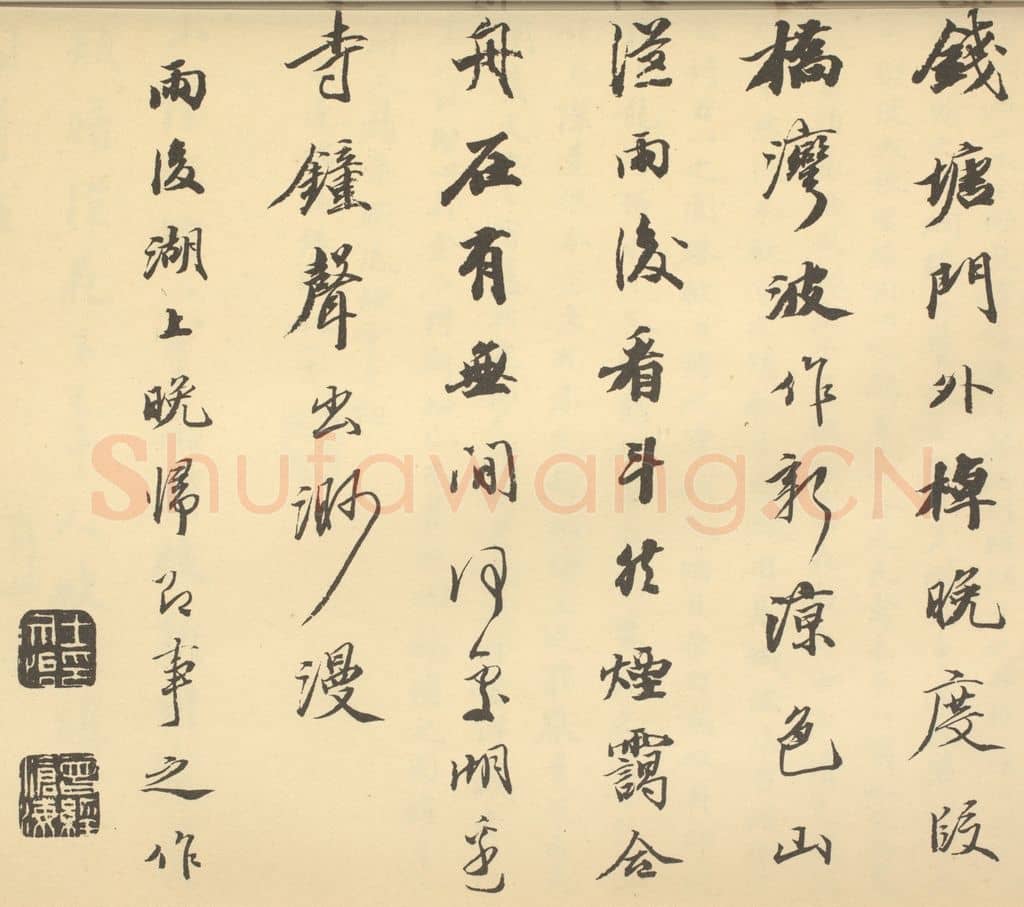 錢塘門外棹晚度段
橋灣波作新涼色山
從雨後看斗然煙靄合
舟在有無間何處湖邊
寺鐘聲出渺漫
雨後湖上晚歸即事之作
曾經滄海
Shufawang.CN